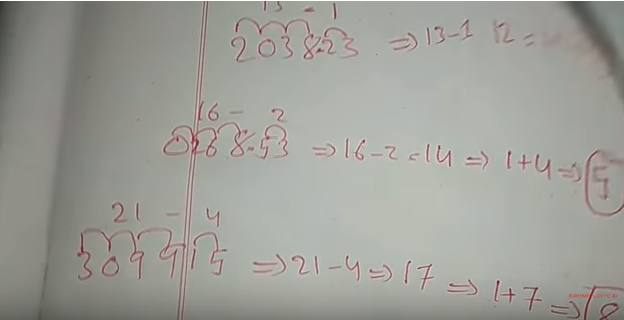 13 - 1
2038.23 ⇒ 13-1 12 =
16 - 2
0268.53 ⇒ 16-2=14 ⇒ 1+4 ⇒ 5
21 - 4
⇒ 21-4 ⇒ 17 ⇒ 1+7 ⇒ 8